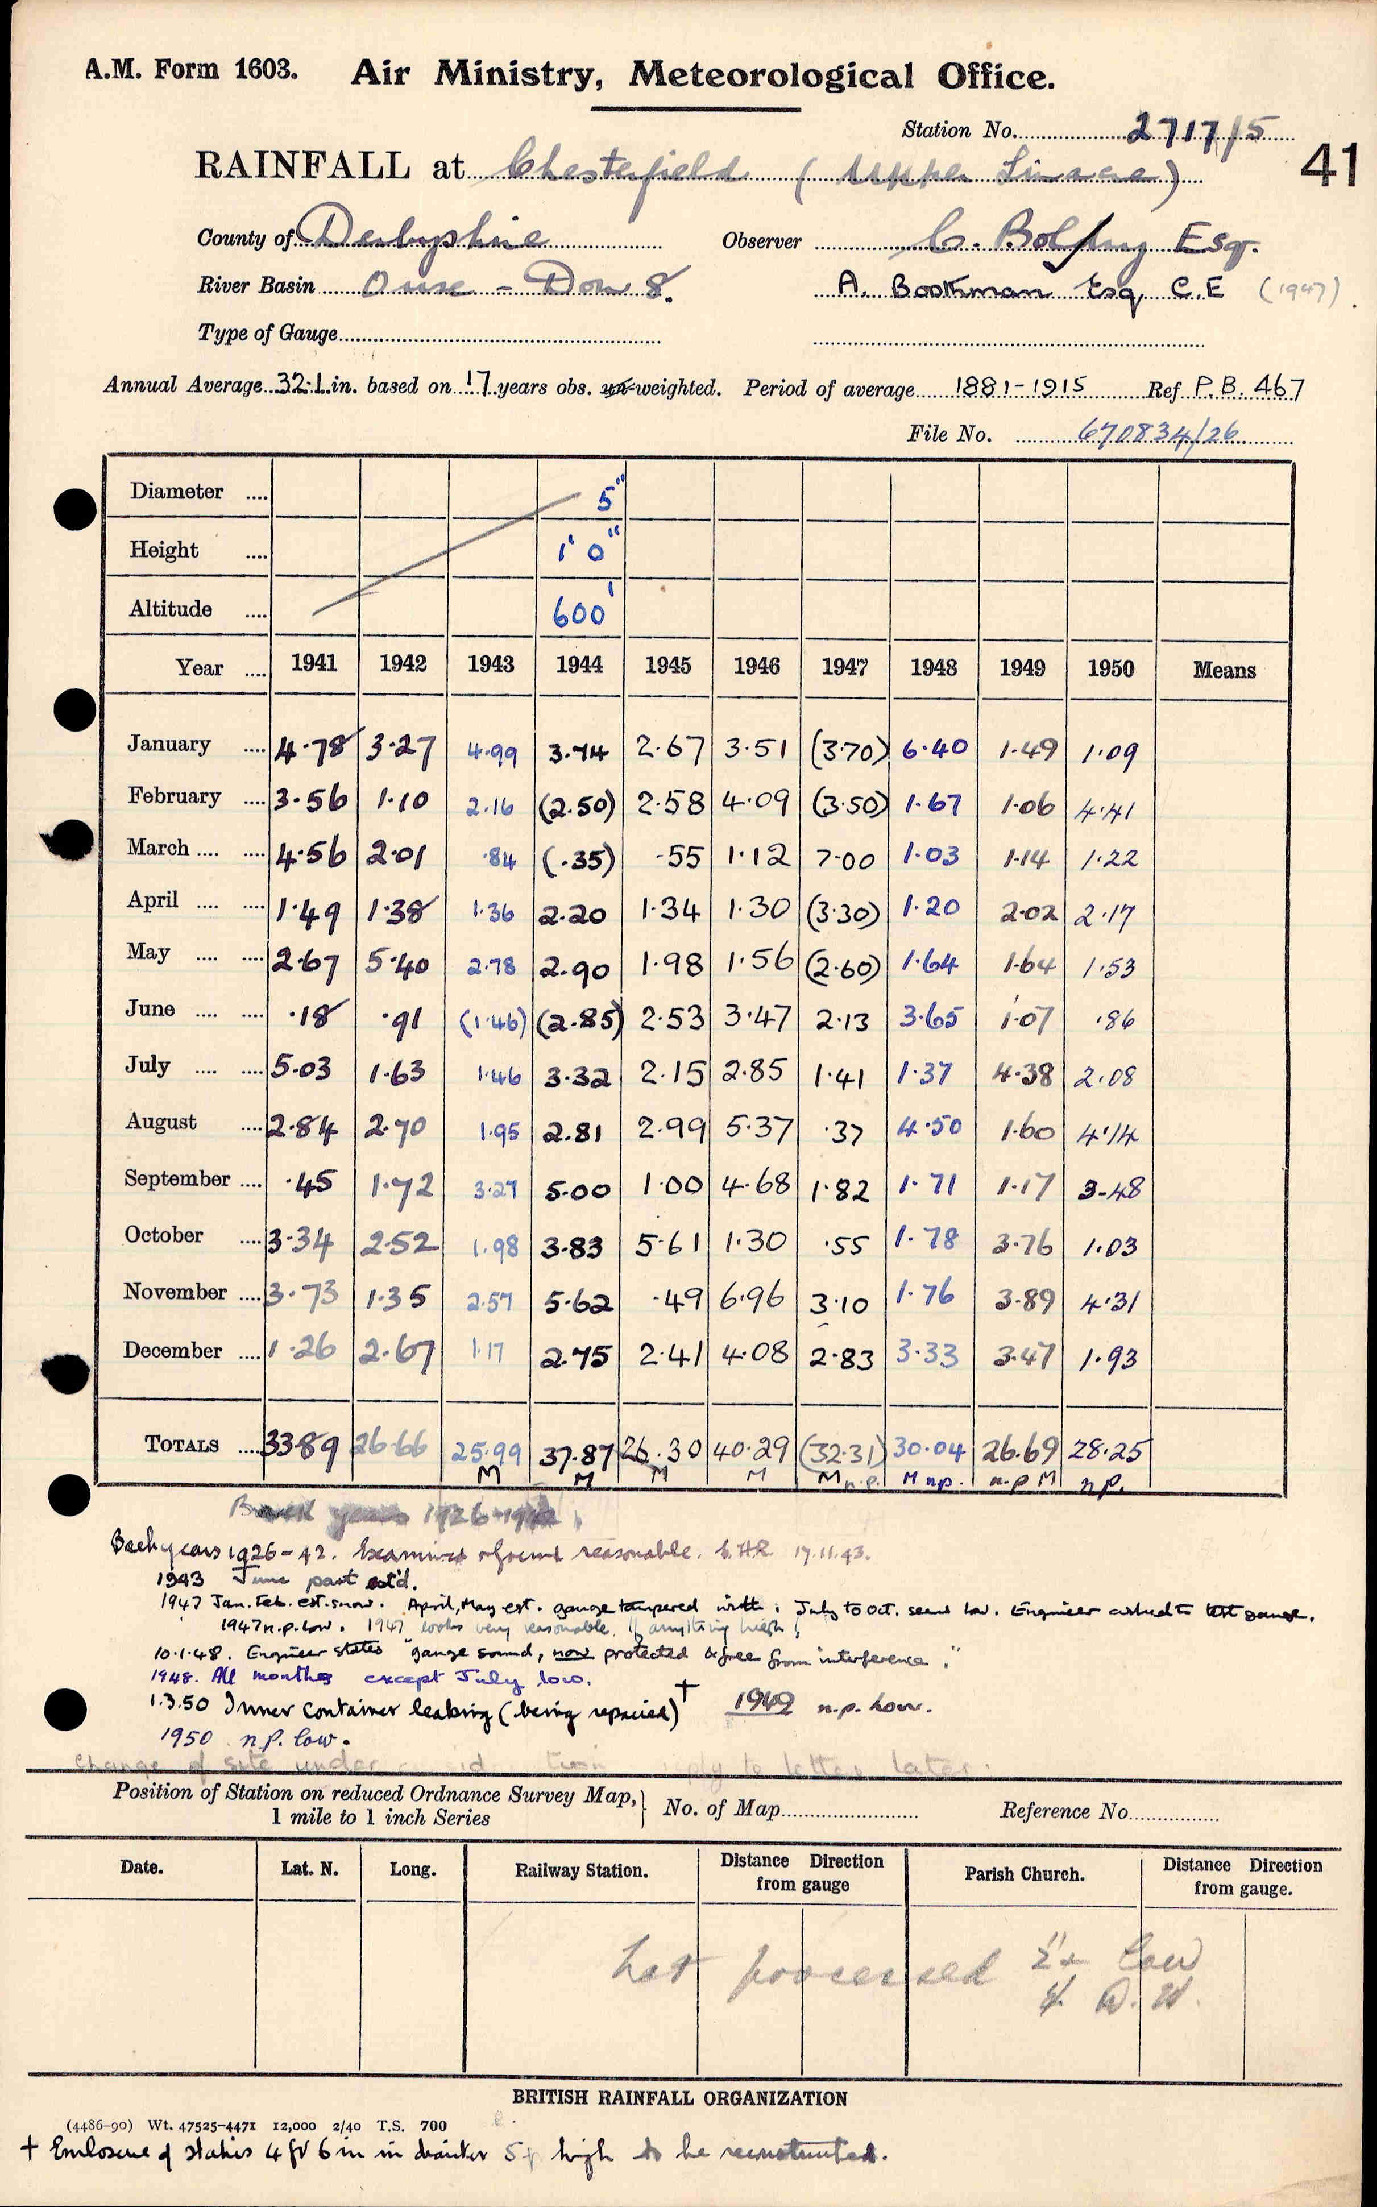 A.M. Form 1603. Air Ministry, Meteorological Office.
Station No. 2717/5
41
RAINFALL at Chesterfield (Upper Linacre)
County of Derbyshire Observer C. Esq.
River Basin Ouse - Don 8. A. Boothman Esq. C.E (1947)
Type of Gauge
Annual Average 32.1 in. based on 17 years obs. un-weighted. Period of average 1881-1915 Ref P.B. 467
File No. 670834/26
Diameter .... 5"
Height .... 1' 0"
Altitude .... 600'
Year .... 1941 1942 1943 1944 1945 1946 1947 1948 1949 1950 Means
January .... 4.78 3.27 4.99 3.74 2.67 3.51 (3.70) 6.40 1.49 1.09
February .... 3.56 1.10 2.16 (2.50) 2.58 4.09 (3.50) 1.67 1.06 4.41
March .... .... 4.56 2.01 .84 (.35) .55 1.12 7.00 1.03 1.14 1.22
April .... .... 1.49 1.38 1.36 2.20 1.34 1.30 (3.30) 1.20 2.02 2.17
May .... .... 2.67 5.40 2.78 2.90 1.98 1.56 (2.60) 1.64 1.64 1.53
June .... .... .18 .91 (1.46) (2.85) 2.53 3.47 2.13 3.65 1.07 .86
July .... .... 5.03 1.63 1.46 3.32 2.15 2.85 1.41 1.37 4.38 2.08
August .... 2.84 2.70 1.95 2.81 2.99 5.37 .37 4.50 1.60 4.14
September .... .45 1.72 3.27 5.00 1.00 4.68 1.82 1.71 1.17 3.48
October .... 3.34 2.52 1.98 3.83 5.61 1.30 .55 1.78 3.76 1.03
November .... 3.73 1.35 2.57 5.62 .49 6.96 3.10 1.76 3.89 4.31
December .... 1.26 2.67 1.17 2.75 2.41 4.08 2.83 3.33 3.47 1.93
TOTALS .... 33.89 26.66 25.99 37.87 26.30 40.29 (32.31) 30.04 26.69 28.25
M M M M M n.p. M n.p. n.p M n.p.
Back years 1926-1942
Back years 1926-42. Examined & found reasonable. 17.11.43.
1943 June part est'd.
1947 Jan. Feb. est. snow. April, May est. gauge tampered with. July to Oct. seem low. Engineer asked to test gauge.
1947 n.p. low. 1947 looks very reasonable, if anything high!
10.1.48. Engineer states "gauge sound, now protected & free from interference."
1948. All months except July low.
1.3.50 Inner container leaking (being repaired) † 1949 n.p. low.
1950 n.p. low.
Change of site under to letter later.
Position of Station on reduced Ordnance Survey Map, 1 mile to 1 inch Series } No. of Map Reference No.
Date. Lat. N. Long. Railway Station. Distance Direction from gauge Parish Church. Distance Direction from gauge.
Not processed 2" low
BRITISH RAINFALL ORGANIZATION
(4486-90) Wt. 47525-4471 12,000 2/40 T.S. 700
† Enclosure of stakes 4 ft 6 in in diameter 5 ft high to be reconstructed.